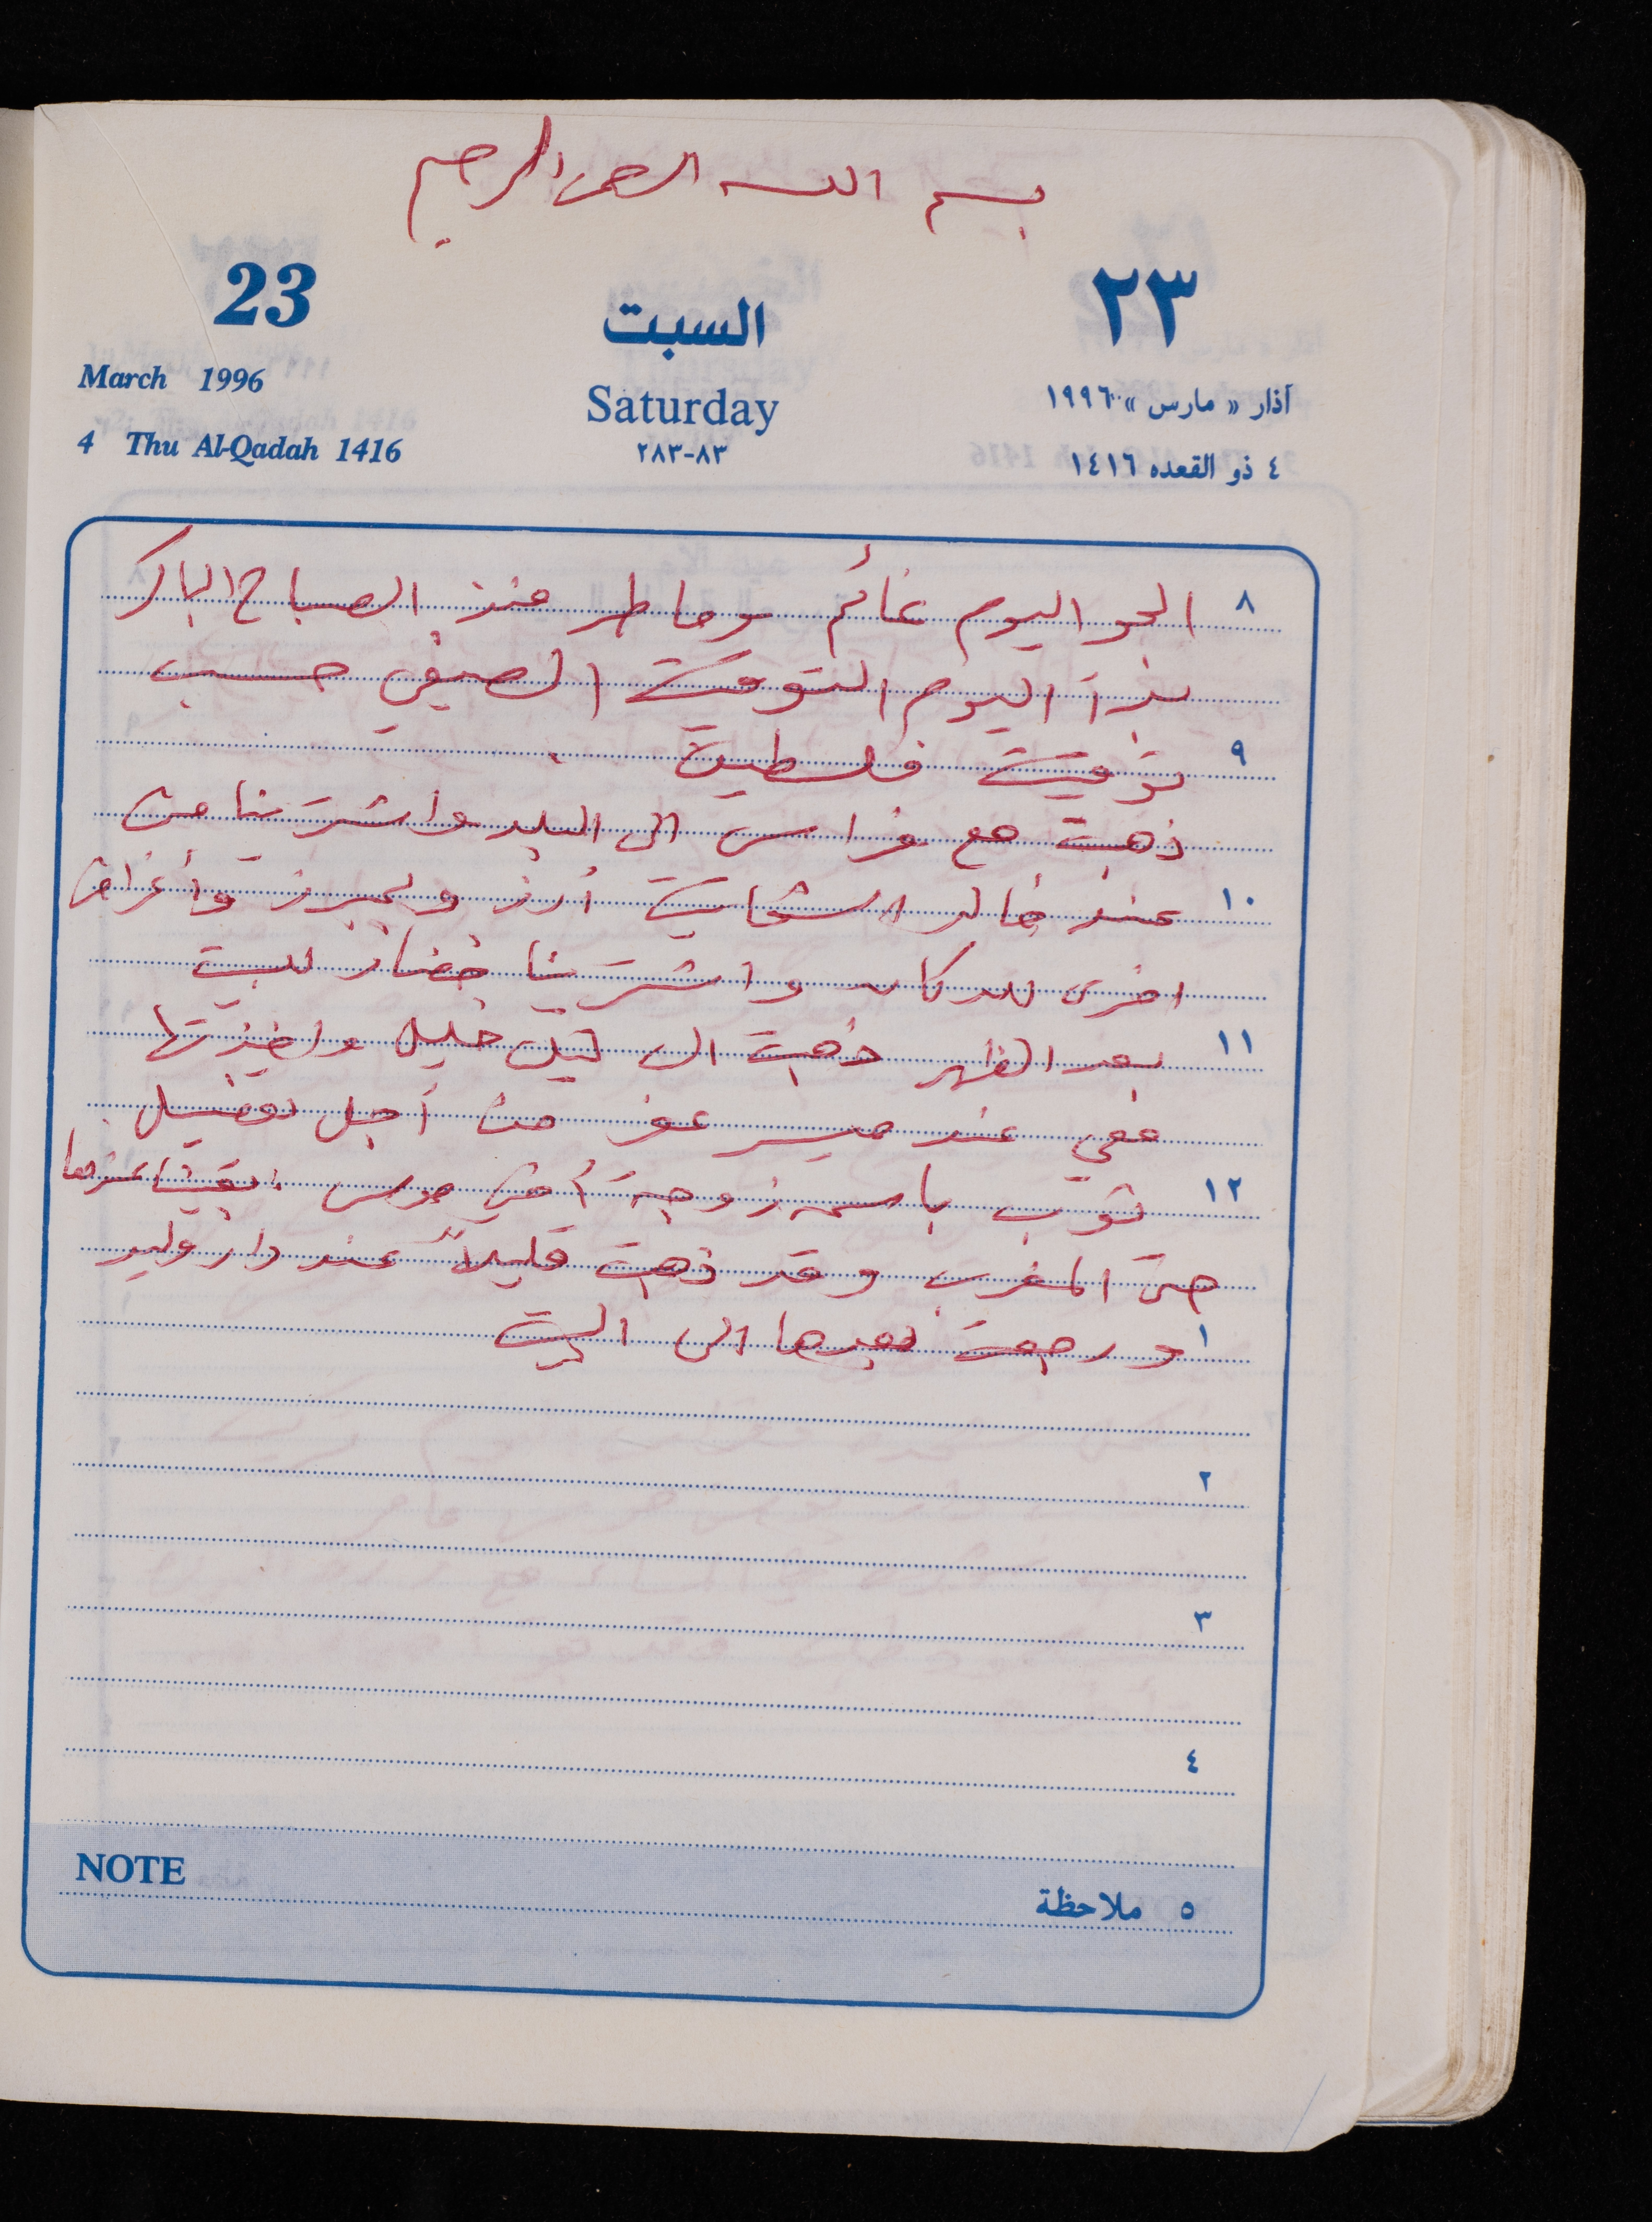 بسم الله الرحمن الرحيم
23 السبت ٢٣
March 1996 Saturday آذار « مارس » ١٩٩٦
4 Thu Al-Qadah 1416 ٢٨٣-٨٣ ٤ ذو القعده ١٤١٦
٨ الجو اليوم غائم وماطر منذ الصباح الباكر
بدأ اليوم التوقيت الصيفي حسب
٩ توقيت فلسطين .
ذهبت مع فراس الى البلد واشترينا من
١٠ عند خالد أرز وأغراض
اخرى للدكان واشترينا خضار للبيت
١١ بعد الظهر ذهبت الى خليل واخذتها
معي عند من أجل تفصيل
١٢ ثوب باسم زوجة أخي موسى . بقينا عندها
حتى المغرب وقد ذهبت قليلاً عند دار وليد
١ ورجعت بعدها الى البيت
٢
٣
٤
NOTE
٥ ملاحظة